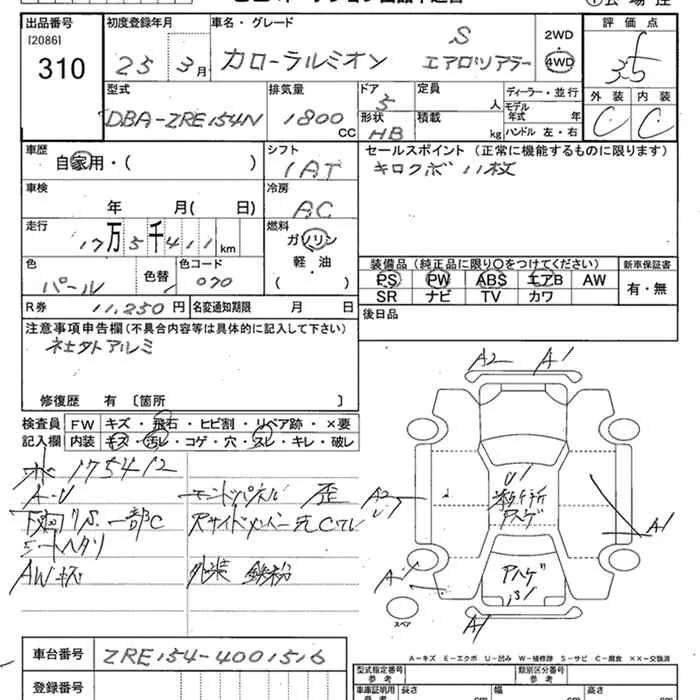 出品番号 初度登録年月 車名・グレード 2WD 評価点
[2086]
310 25年 3月 カローラルミオン S エアロツアラー 4WD 3.5
型式 排気量 ドア 定員 ディーラー・並行 外装 内装
DBA-ZRE154N 1800 CC 5 人 モデル年式 年 C C
形状 HB 積載 kg ハンドル 左・右
車歴 シフト セールスポイント(正常に機能するものに限ります)
自家用・( ) 1AT
車検 冷房
年 月( 日) AC
走行 燃料
17万5千411km ガソリン
軽・油
( )
装備品(純正品に限り○をつけてください) 新車保証書
色 色替 色コード PS PW ABS エアB AW 有・無
パール 070 SR ナビ TV カワ
R券 11,250円 名変通知期限 月 日 後日品
注意事項申告欄(不具合内容等は具体的に記入して下さい)
修復歴 有 〔箇所 〕
検査員 FW キズ・飛石・ヒビ割・リペア跡・×要
記入欄 内装 キズ・汚レ・コゲ・穴・スレ・キレ・破レ
175412
A-U エンドパネル 歪
下回リS 一部C
シートヘタリ
AWキズ 外装 鉄粉
A2 A1
A2
U
U1
アハゲ
A1
アハゲ
A1
スペア
A-キズ E-エクボ U-凹み W-補修跡 S-サビ C-腐食 ××-交換済
車台番号 ZRE154-4001516 型式指定番号 参考 類別区分番号 参考
登録番号 車庫証明用 参考 長さ cm 幅 cm 高さ cm